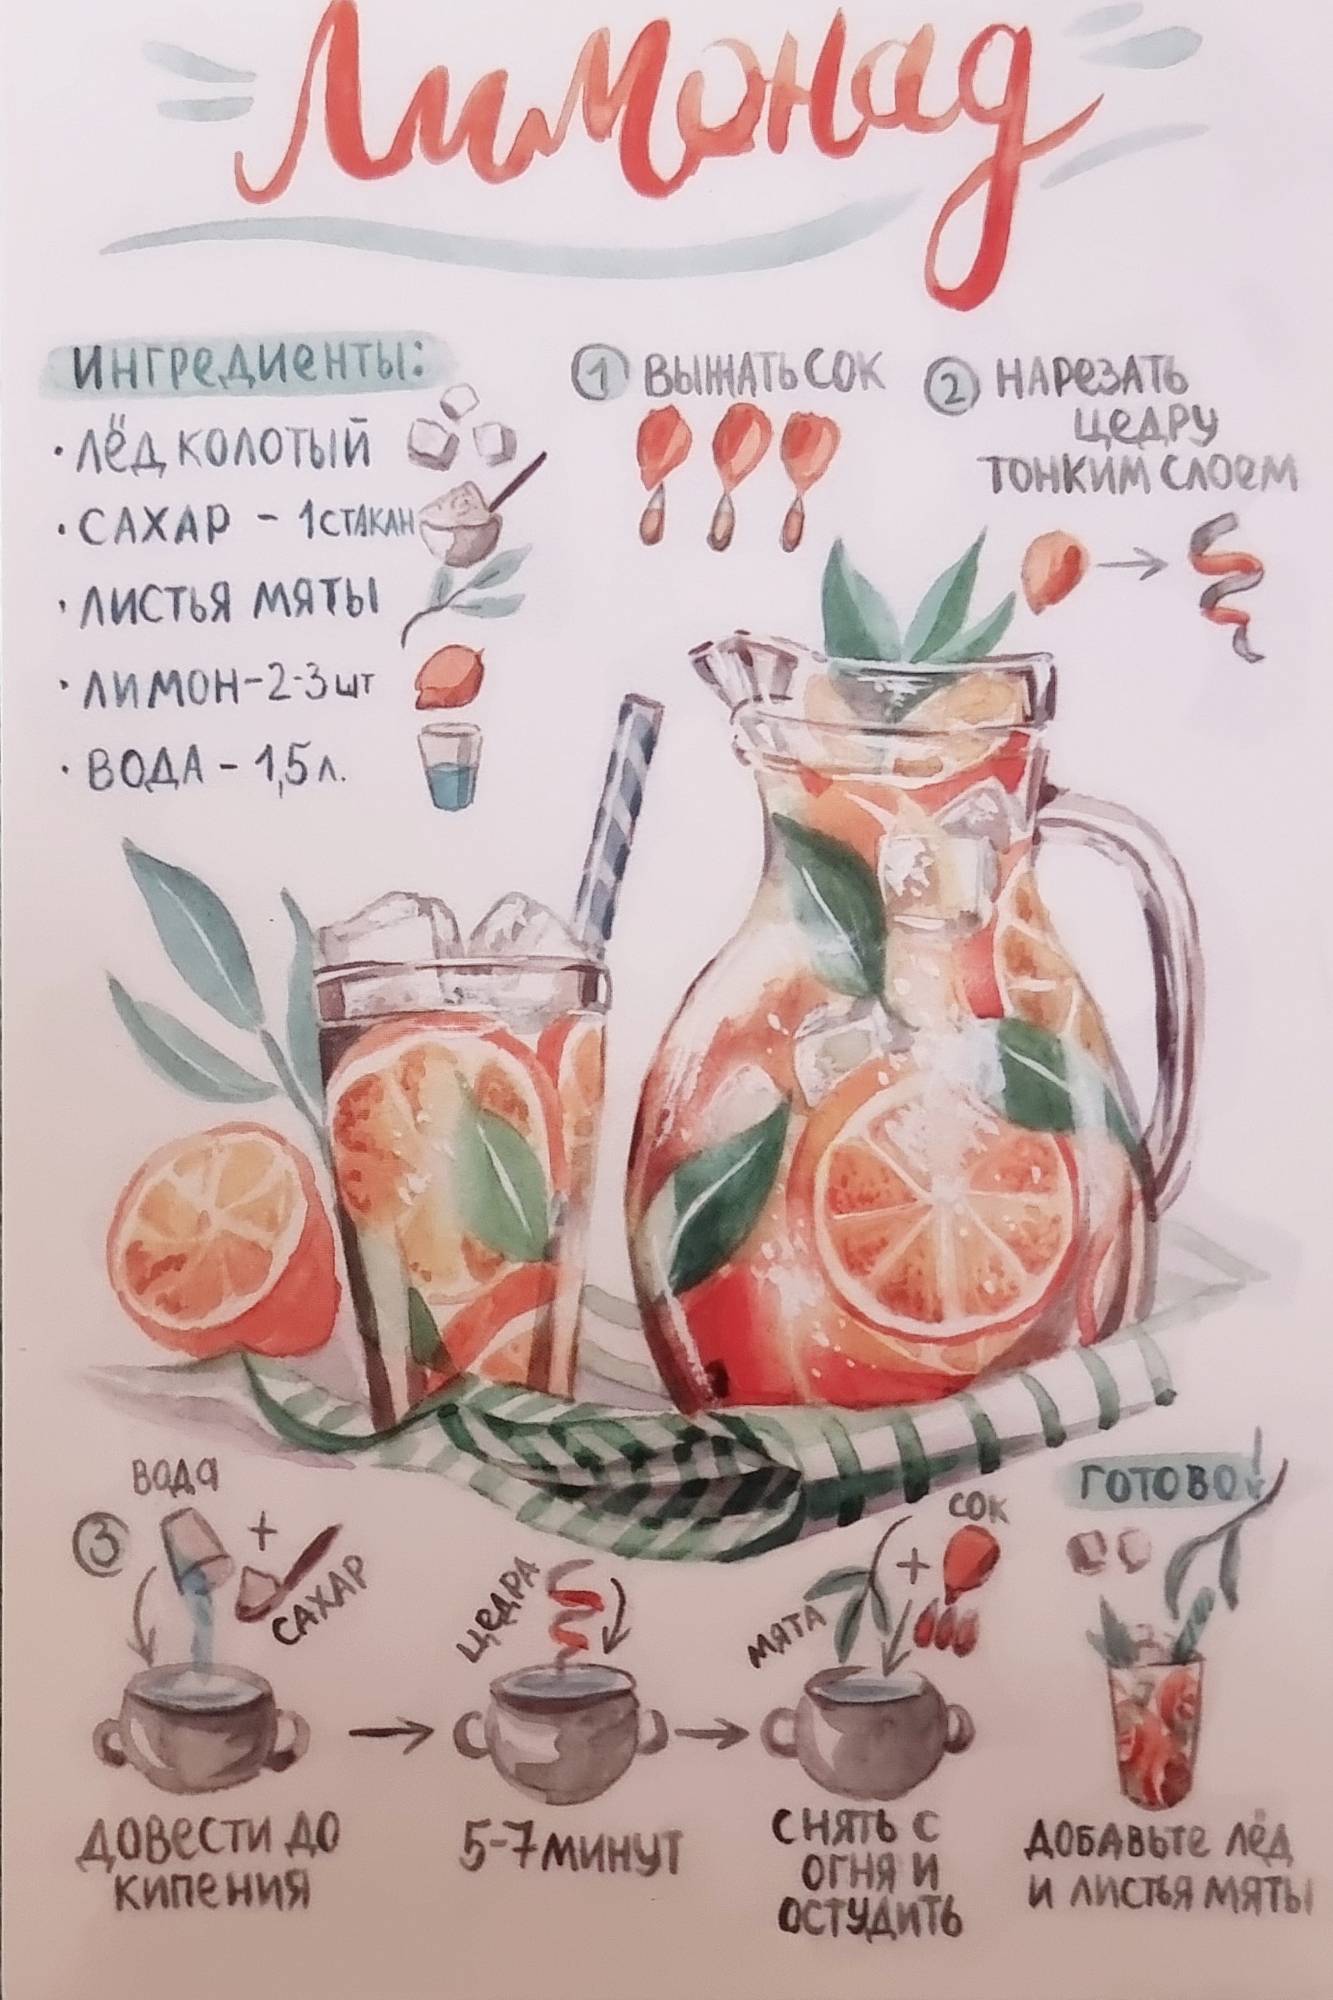 Лимонад
ИНГРЕДИЕНТЫ:
· ЛЁД КОЛОТЫЙ
· САХАР - 1 СТАКАН
· ЛИСТЬЯ МЯТЫ
· ЛИМОН - 2-3 шт
· ВОДА - 1,5 л.
1 ВЫЖАТЬ СОК
2 НАРЕЗАТЬ
ЦЕДРУ
ТОНКИМ СЛОЕМ
3
ВОДА
+
САХАР
ДОВЕСТИ ДО
КИПЕНИЯ
ЦЕДРА
5-7 МИНУТ
МЯТА
+
СОК
СНЯТЬ С
ОГНЯ И
ОСТУДИТЬ
ГОТОВО!
ДОБАВЬТЕ ЛЁД
И ЛИСТЬЯ МЯТЫ